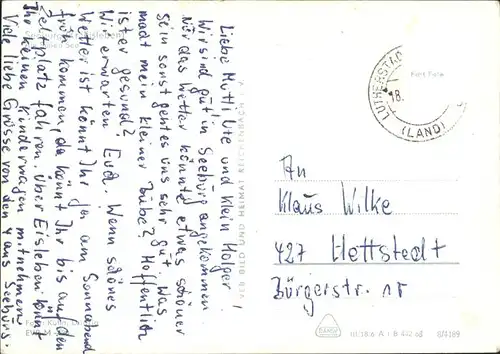 Liebe Mutti Ute und klein Holger!
Wir sind gut in Seeburg angekommen
Nur das Wetter könnte etwas schöner
sein sonst gehts uns sehr gut. Was
macht mein kleiner Bube? Hoffentlich
ist er gesund?
Wir erwarten Euch. Wenn schönes
Wetter ist könnt Ihr ja am Sonnabend
früh kommen, da könnt Ihr bis auf den
Zeltplatz fahren. Über Eisleben könnt
Ihr keinen Kinderwagen mitnehmen.
Viele liebe Grüsse von den 4 aus Seeburg.
LUTHERSTADT
18.
(LAND)
An
Klaus Wilke
427 Hettstedt
Bürgerstr. 15
VEB BILD UND HEIMAT REICHENBACH
8/4169